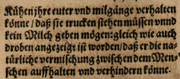 Kühen jhr euter vnd milgänge verhalten
könne / daß sie trucken stehen müssen vnnd
kein Milch geben mögen: gleich wie auch
droben angezeigt ist worden / daß er die na-
türliche vermischung zwischen dem Men-
schen auffhalten vnd verhindern könne.